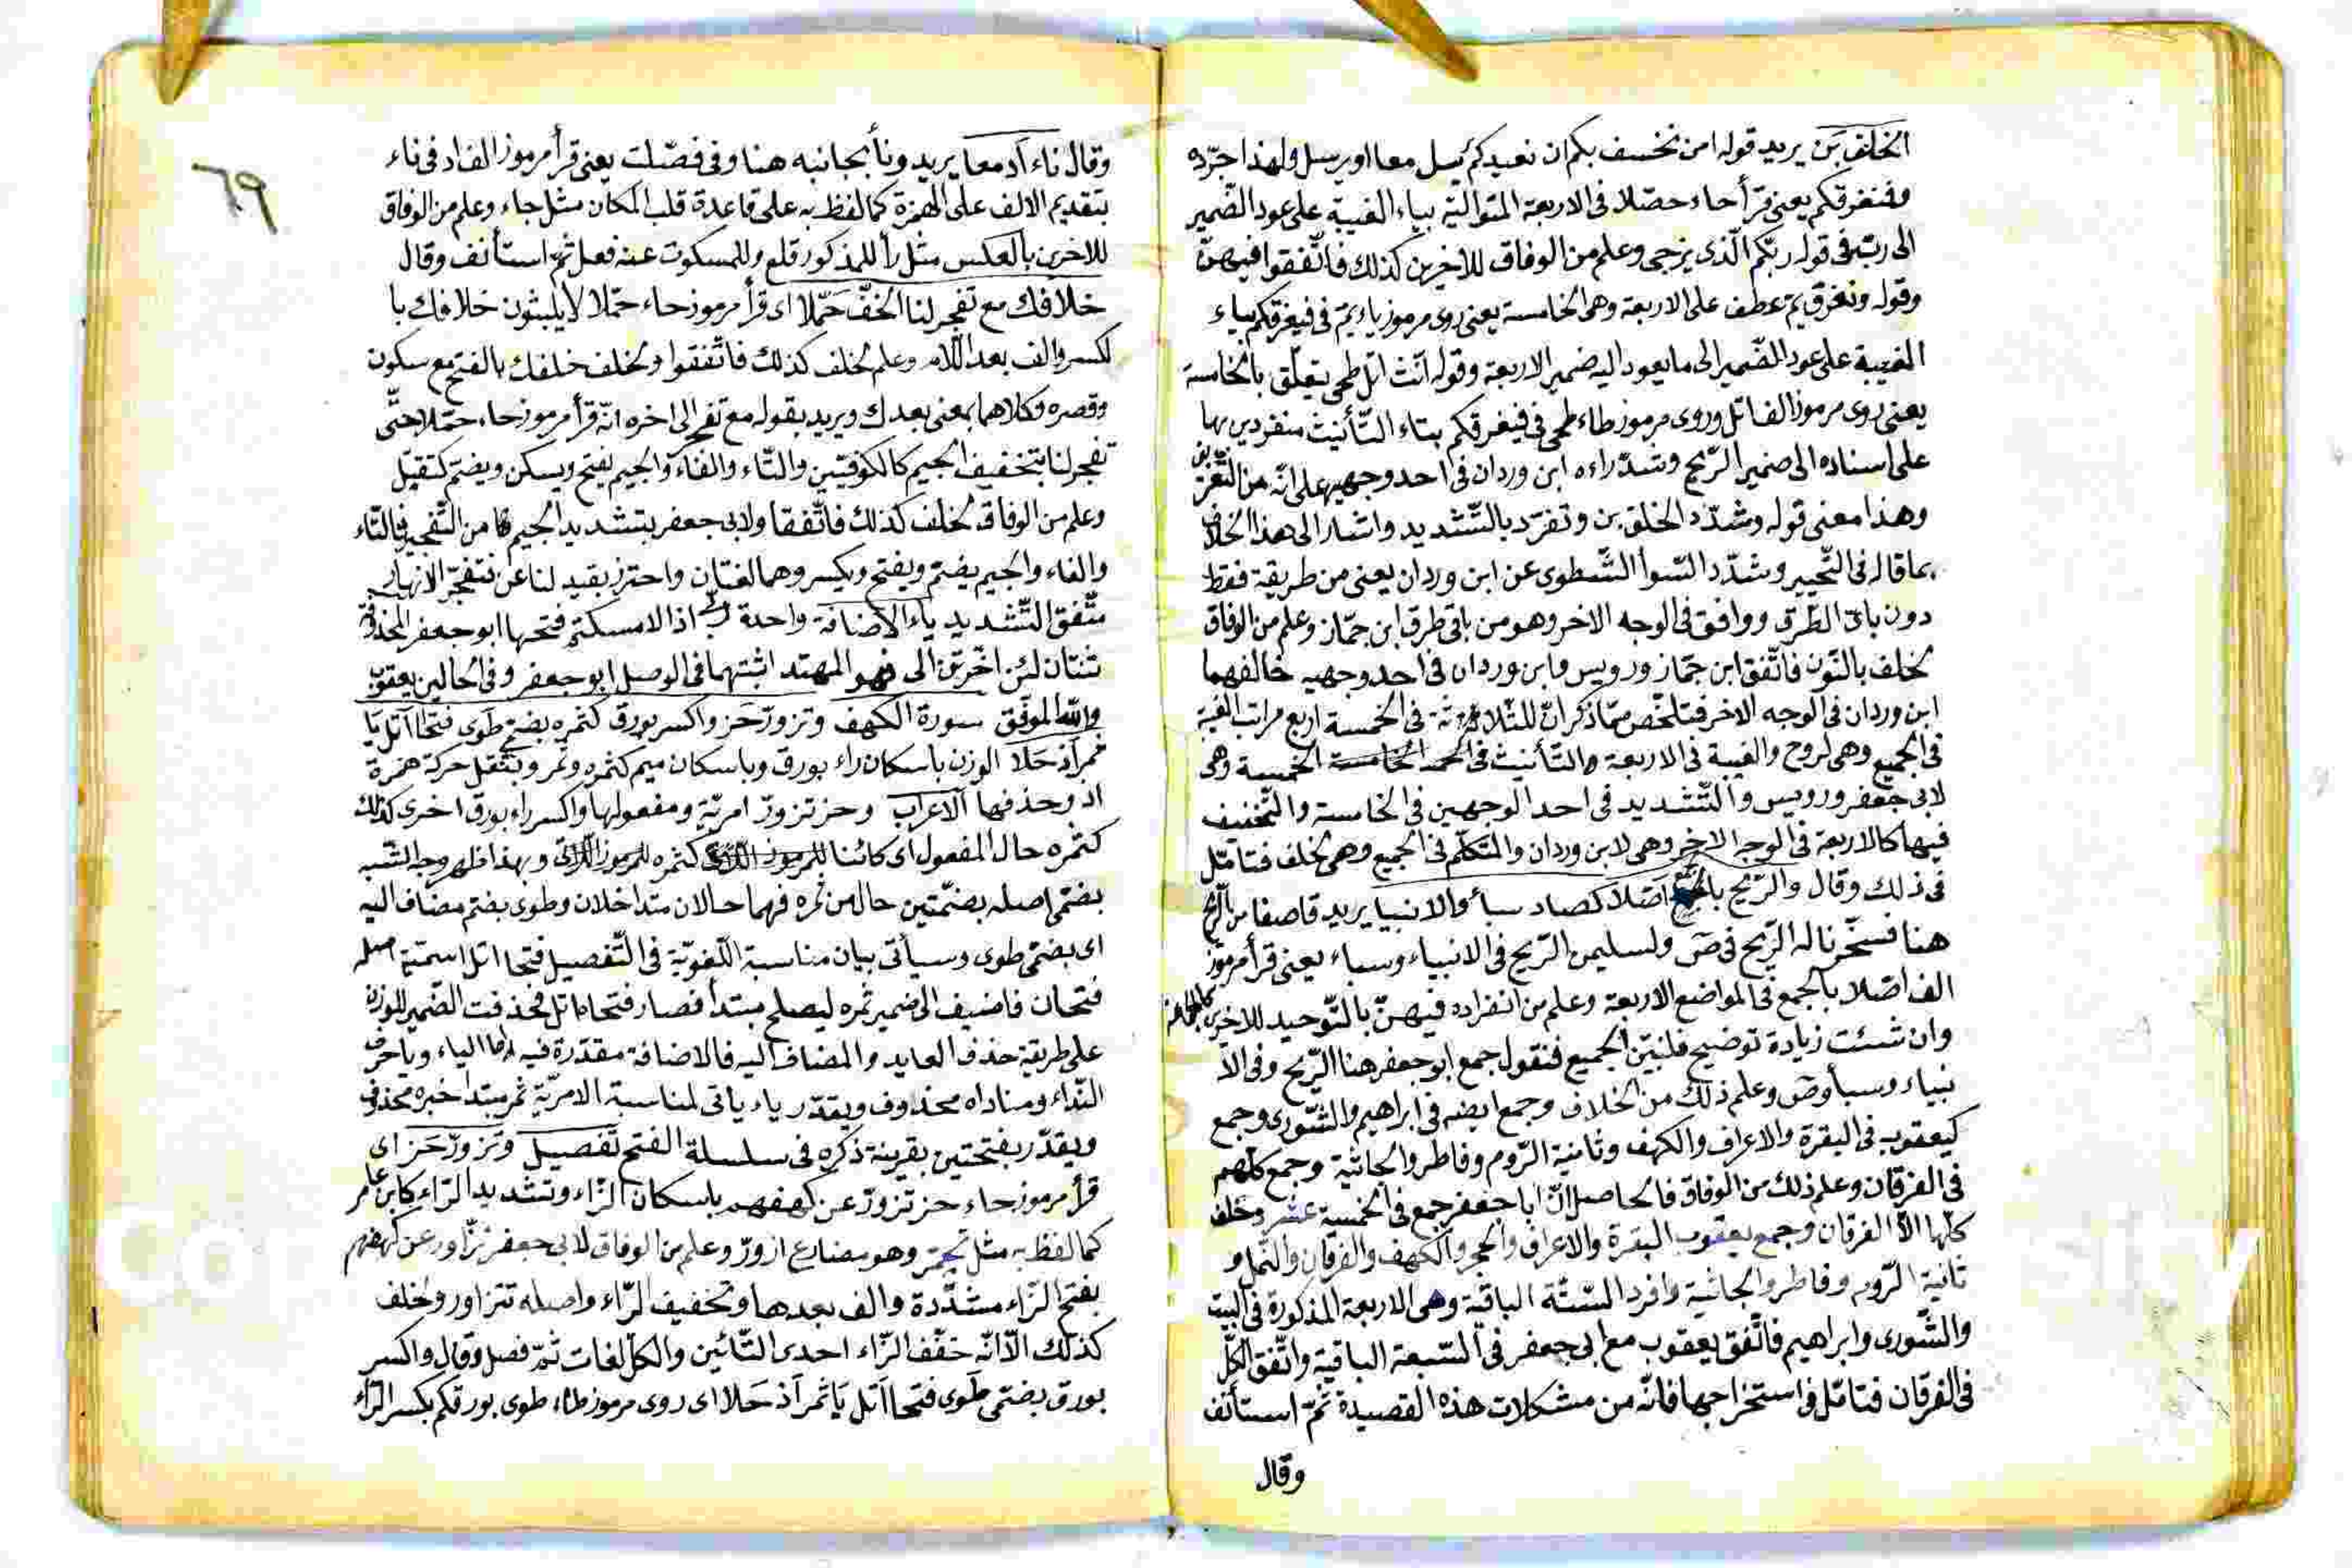 الخلف بن يريد قوله امن نخسف بكم ان نعيدكم يرسل معا او يرسل ولهذا جرّده
وفنغرقكم يعنى قرأ حاء حصّلا فى الاربعة المتوالية بياء الغيبة على عود الضّمير
الى ربّ فى قوله ربّكم الّذى يزجى وعلم من الوفاق للاخرين كذلك فاتّفقوا فيهنّ
وقوله ونغرق يمّ عطف على الاربعة وهى الخامسة يعنى روى مرموز ياء يمّ فى فيغرقكم بياء
الغيبة على عود الضّمير الى ما يعود اليه ضمير الاربعة وقوله انّث اتل طمى يتعلّق بالخامسة
يعنى روى مرموز الف اتل وروى مرموز طاء طمى فى فيغرقكم بتاء التّأنيث منفردين بها
على اسناده الى ضمير الرّيح وشدّ راءه ابن وردان فى احد وجهيه على انّه من التّغريق
وهذا معنى قوله وشدّد الخلف بن وتفرّد بالتّشديد واشار الى هذا الخلاف
بما قاله فى التّحبير وشدّد الرّاء الشّطوى عن ابن وردان يعنى من طريقة فقط
دون باقى الطّرق ووافق فى الوجه الاخر وهو من باقى طرق ابن جمّاز وعلم من الوفاق
لخلف بالنّون فاتّفق ابن جمّاز ورويس وابن وردان فى احد وجهيه خالفهما
ابن وردان فى الوجه الاخر فتلخّص ممّا ذكر انّ للثّلاثة فى الخمسة اربع مراتب الغيبة
فى الجميع وهى لروح والغيبة فى الاربعة والتّأنيث فى الخامسة الخمسة وهى
لابى جعفر ورويس والتّشديد فى احد الوجهين فى الخامسة والتّخفيف
فيها كالاربعة فى الوجه الاخر وهى لابن وردان والتّكلّم فى الجميع وهى لخلف فتامّل
فى ذلك وقال والرّيح بالجمع اصّلا كصاد سبأ والانبيا يريد قاصفا من الرّيح
هنا فسخّرنا له الرّيح فى صۤ ولسليمن الرّيح فى الانبياء وسباء يعنى قرأ مرموز
الف اصّلا بالجمع فى المواضع الاربعة وعلم من انفراده فيهنّ بالتّوحيد للاخرين كالجماعة
وان شئت زيادة توضيح فلنبيّن الجميع فنقول جمع ابو جعفر هنا الرّيح وفى الا
نبياء وسبأ وصۤ وعلم ذلك من الخلاف وجمع ايضه فى ابراهيم والشّورى وجمع
كيعقوب فى البقرة والاعراف والكهف وثانية الرّوم وفاطر والجاثية وجمع كلّهم
فى الفرقان وعلم ذلك من الوفاق فالحاصل انّ ابا جعفر جمع فى الخمسة عشر وخلف
كلّها الاّ الفرقان وجمع يعقوب البقرة والاعراف والحجر والكهف والفرقان والنّمل و
ثانية الرّوم وفاطر والجاثية وافرد السّتّة الباقية وهى الاربعة المذكورة فى البيت
والشّورى وابراهيم فاتّفق يعقوب مع ابى جعفر فى التّسعة الباقية واتّفق الكلّ
فى الفرقان فتامّل فى استخراجها فانّه من مشكلات هذه القصيدة ثمّ استأنف
وقال
٦٩
وقال ناء اد معا يريد ونأ بجانبه هنا وفى فصّلت يعنى قرأ مرموز الف اد فى ناء
بتقديم الالف على الهمزة كما لفظ به على قاعدة قلب المكان مثل جاء وعلم من الوفاق
للاخرين بالعكس مثل رأ للمذكور قلم وللمسكوت عنه فعل ثمّ استأنف وقال
خلافك مع تفجر لنا الخفّ حمّلا اى قرأ مرموز حاء حمّلا لا يلبثون خلافك با
لكسر والف بعد اللاّم وعلم لخلف كذلك فاتّفقوا ولخلف خلفك بالفتح مع سكون
وقصره وكلاهما بمعنى بعدك ويريد بقوله مع تفجر الى اخره انّه قرأ مرموز حاء حمّلا حتّى
تفجر لنا بتخفيف الجيم كالكوفيّين والتّاء والفاء والجيم يفتح ويسكن ويضم كتقتل
وعلم من الوفاق لخلف كذلك فاتّفقا ولابى جعفر بتشديد الجيم كما من التّفجير فالتّاء
والفاء والجيم يضم ويفتح ويكسر وهما لغتان واحترز بقيد لنا عن فتفجّر الانهار
متّفق التّشديد ياء الاضافة واحدة ربى اذا لامسكتم فتحها ابو جعفر المحذوفة
ثنتان لئن اخّرتن الى فهو المهتد اثبتهما فى الوصل ابو جعفر وفى الحالين يعقوب
والله الموفّق سورة الكهف وتزورّ حز واكسر بورق كثمره بضمّى طوى فتحا اتل يا
ثمر اذ حلا الوزن باسكان راء بورق وباسكان ميم كثمره وثمر وبنقل حركة همزة
اذ وحذفها الاعراب وحز تزورّ امريّة ومفعولها واكسر راء بورق اخرى كذلك
كثمره حال المفعول اى كائنا كثمره للرموز وبهذا ظهر وجه الشّبه
بضمّى اصله بضمّتين حال من ثمره فهما حالان متداخلان وطوى بضم مضاف اليه
اى بضمّى طوى وسيأتى بيان مناسبة اللّغويّة فى التّفصيل فتحا اتل اسميّة اصله
فتحان فاضيف الى ضمير ثمره ليصلح مبتدأ فصار فتحاه اتل فحذفت الضّمير للوزن
على طريقة حذف العايد والمضاف اليه فالاضافة مقدّرة فيه الياء ويا حرف
النّداء ومناداه محذوف ويقدّر ياء ياتى لمناسبة الامريّة ثمر مبتدأ خبره محذوف
ويقدّر بفتحتين بقرينة ذكره فى سلسلة الفتح تفصيل وتزورّ حز اى
قرأ مرموز حاء حز تزورّ عن كهفهم باسكان الزّاء وتشديد الرّاء كابن عامر
كما لفظ به مثل تحمرّ وهو مضارع ازورّ وعلم من الوفاق لابى جعفر تزّاور عن كهفهم
بفتح الزّاء مشدّدة والف بعدها وتخفيف الرّاء واصله تتزاور وخلف
كذلك الاّ انّه خفّف الزّاء احدى التّائين والكلّ لغات ثمّ فصل وقال واكسر
بورق بضمّى طوى فتحا اتل يا ثمر اذ حلا اى روى مرموز طاء طوى بورقكم بكسر الرّاء